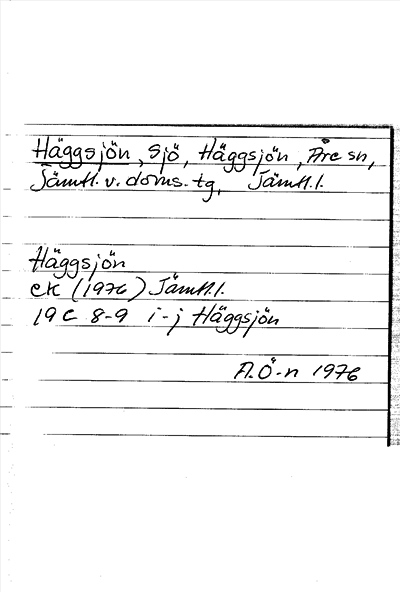 Häggsjön, sjö, Häggsjön, Åre sn,
Jämtl. v. doms. tg, Jämtl. l.
Häggsjön
ek (1976) Jämtl. l.
19 C 8-9 i-j Häggsjön
A. Ö-n 1976